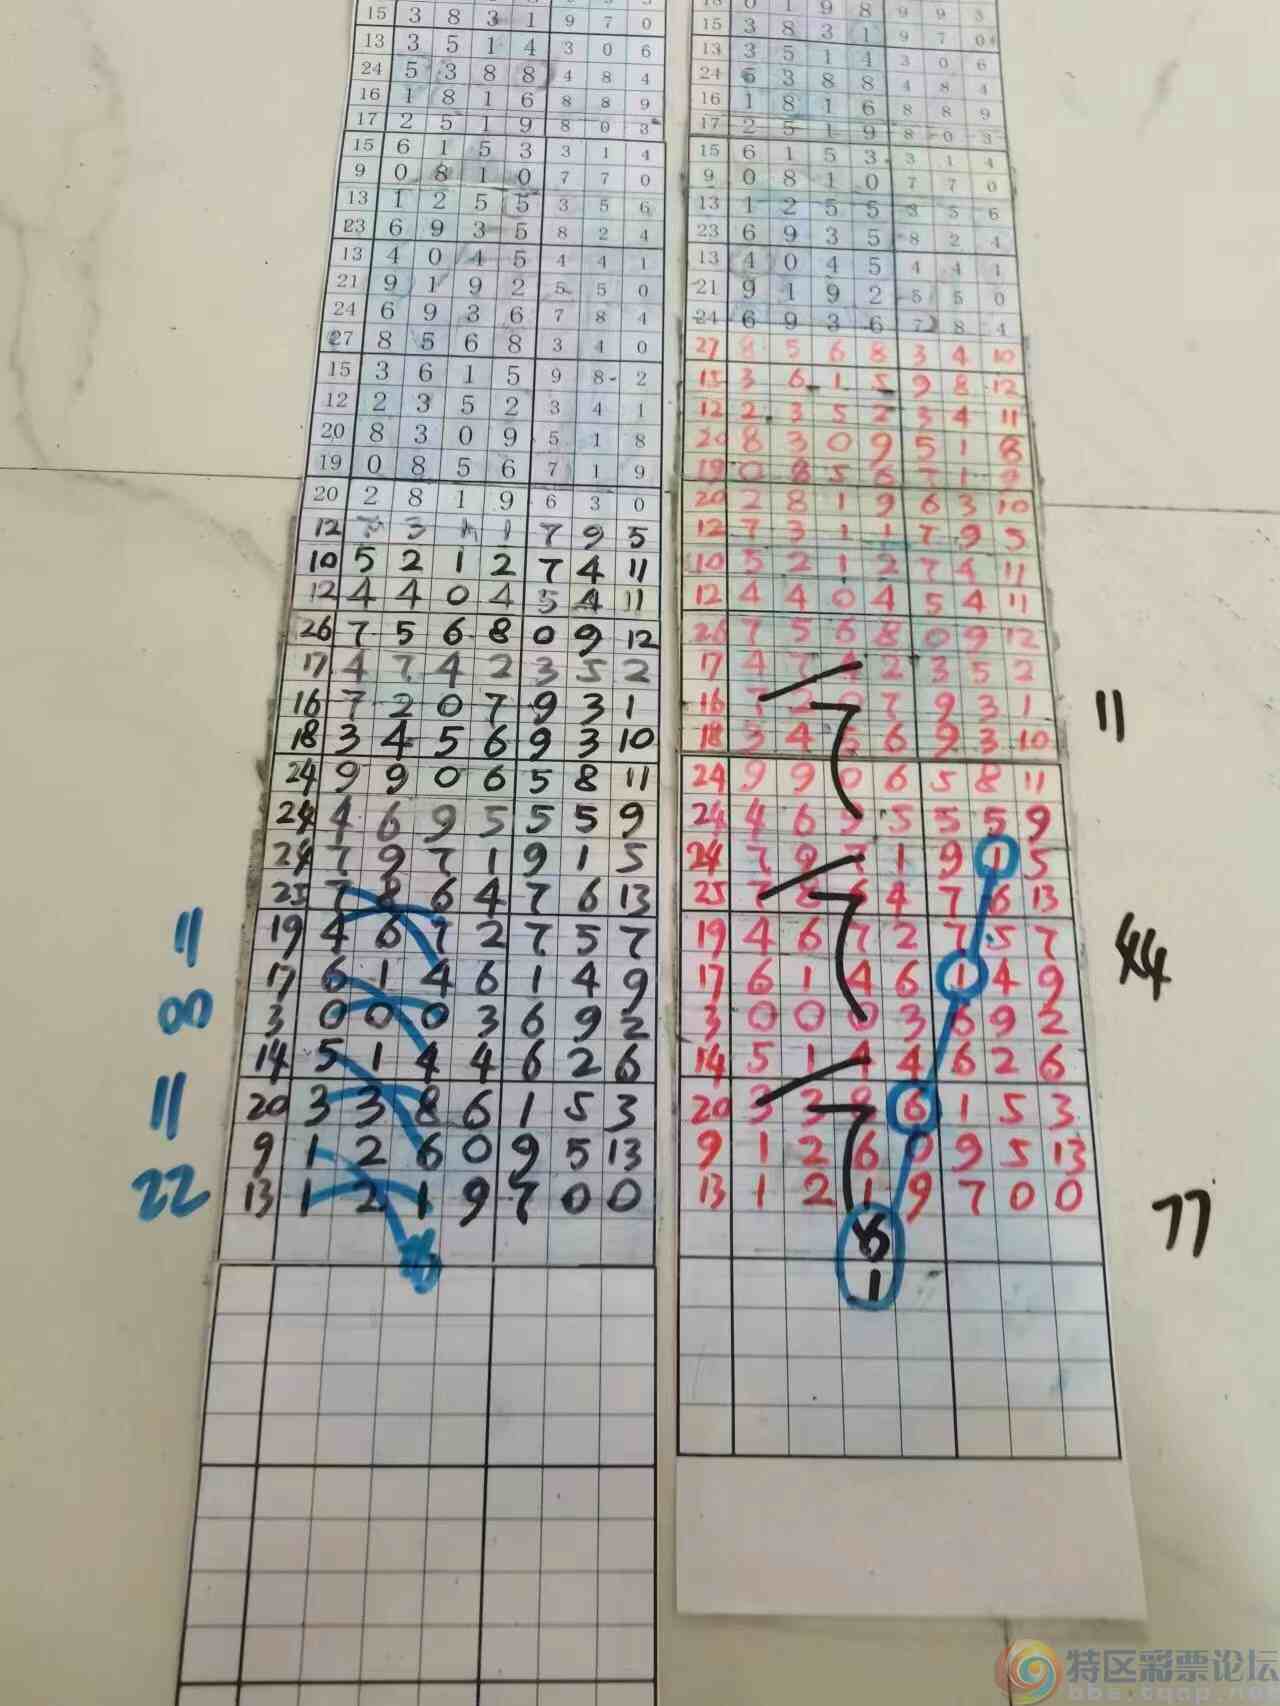 15 3 8 3 1 9 7 0
13 3 5 1 4 3 0 6
24 5 3 8 8 4 8 4
16 1 8 1 6 8 8 9
17 2 5 1 9 8 0 3
15 6 1 5 3 3 1 4
9 0 8 1 0 7 7 0
13 1 2 5 5 3 5 6
23 6 9 3 5 8 2 4
13 4 0 4 5 4 4 1
21 9 1 9 2 5 5 0
24 6 9 3 6 7 8 4
27 8 5 6 8 3 4 0
15 3 6 1 5 9 8 2
12 2 3 5 2 3 4 1
20 8 3 0 9 5 1 8
19 0 8 5 6 7 1 9
20 2 8 1 9 6 3 0
12 7 3 1 1 7 9 5
10 5 2 1 2 7 4 11
12 4 4 0 4 5 4 11
26 7 5 6 8 0 9 12
17 4 7 4 2 3 5 2
16 7 2 0 7 9 3 1
18 3 4 5 6 9 3 10
24 9 9 0 6 5 8 11
24 4 6 9 5 5 5 9
24 7 9 7 1 9 1 5
25 7 8 6 4 7 6 13
19 4 6 7 2 7 5 7
17 6 1 4 6 1 4 9
3 0 0 0 3 6 9 2
14 5 1 4 4 6 2 6
20 3 3 8 6 1 5 3
9 1 2 6 0 9 5 13
13 1 2 1 9 7 0 0
11
00
11
22
0 1 9 8 9 9 3
15 3 8 3 1 9 7 0
13 3 5 1 4 3 0 6
24 5 3 8 8 4 8 4
16 1 8 1 6 8 8 9
17 2 5 1 9 8 0 3
15 6 1 5 3 3 1 4
9 0 8 1 0 7 7 0
13 1 2 5 5 3 5 6
23 6 9 3 5 8 2 4
13 4 0 4 5 4 4 1
21 9 1 9 2 5 5 0
24 6 9 3 6 7 8 4
27 8 5 6 8 3 4 10
15 3 6 1 5 9 8 12
12 2 3 5 2 3 4 11
20 8 3 0 9 5 1 8
19 0 8 5 6 7 1 9
20 2 8 1 9 6 3 10
12 7 3 1 1 7 9 5
10 5 2 1 2 7 4 11
12 4 4 0 4 5 4 11
26 7 5 6 8 0 9 12
17 4 7 4 2 3 5 2
16 7 2 0 7 9 3 1
18 3 4 5 6 9 3 10
24 9 9 0 6 5 8 11
24 4 6 9 5 5 5 9
24 7 9 7 1 9 1 5
25 7 8 6 4 7 6 13
19 4 6 7 2 7 5 7
17 6 1 4 6 1 4 9
3 0 0 0 3 6 9 2
14 5 1 4 4 6 2 6
20 3 3 8 6 1 5 3
9 1 2 6 0 9 5 13
13 1 2 1 9 7 0 0
1
11
44
77
特区彩票论坛